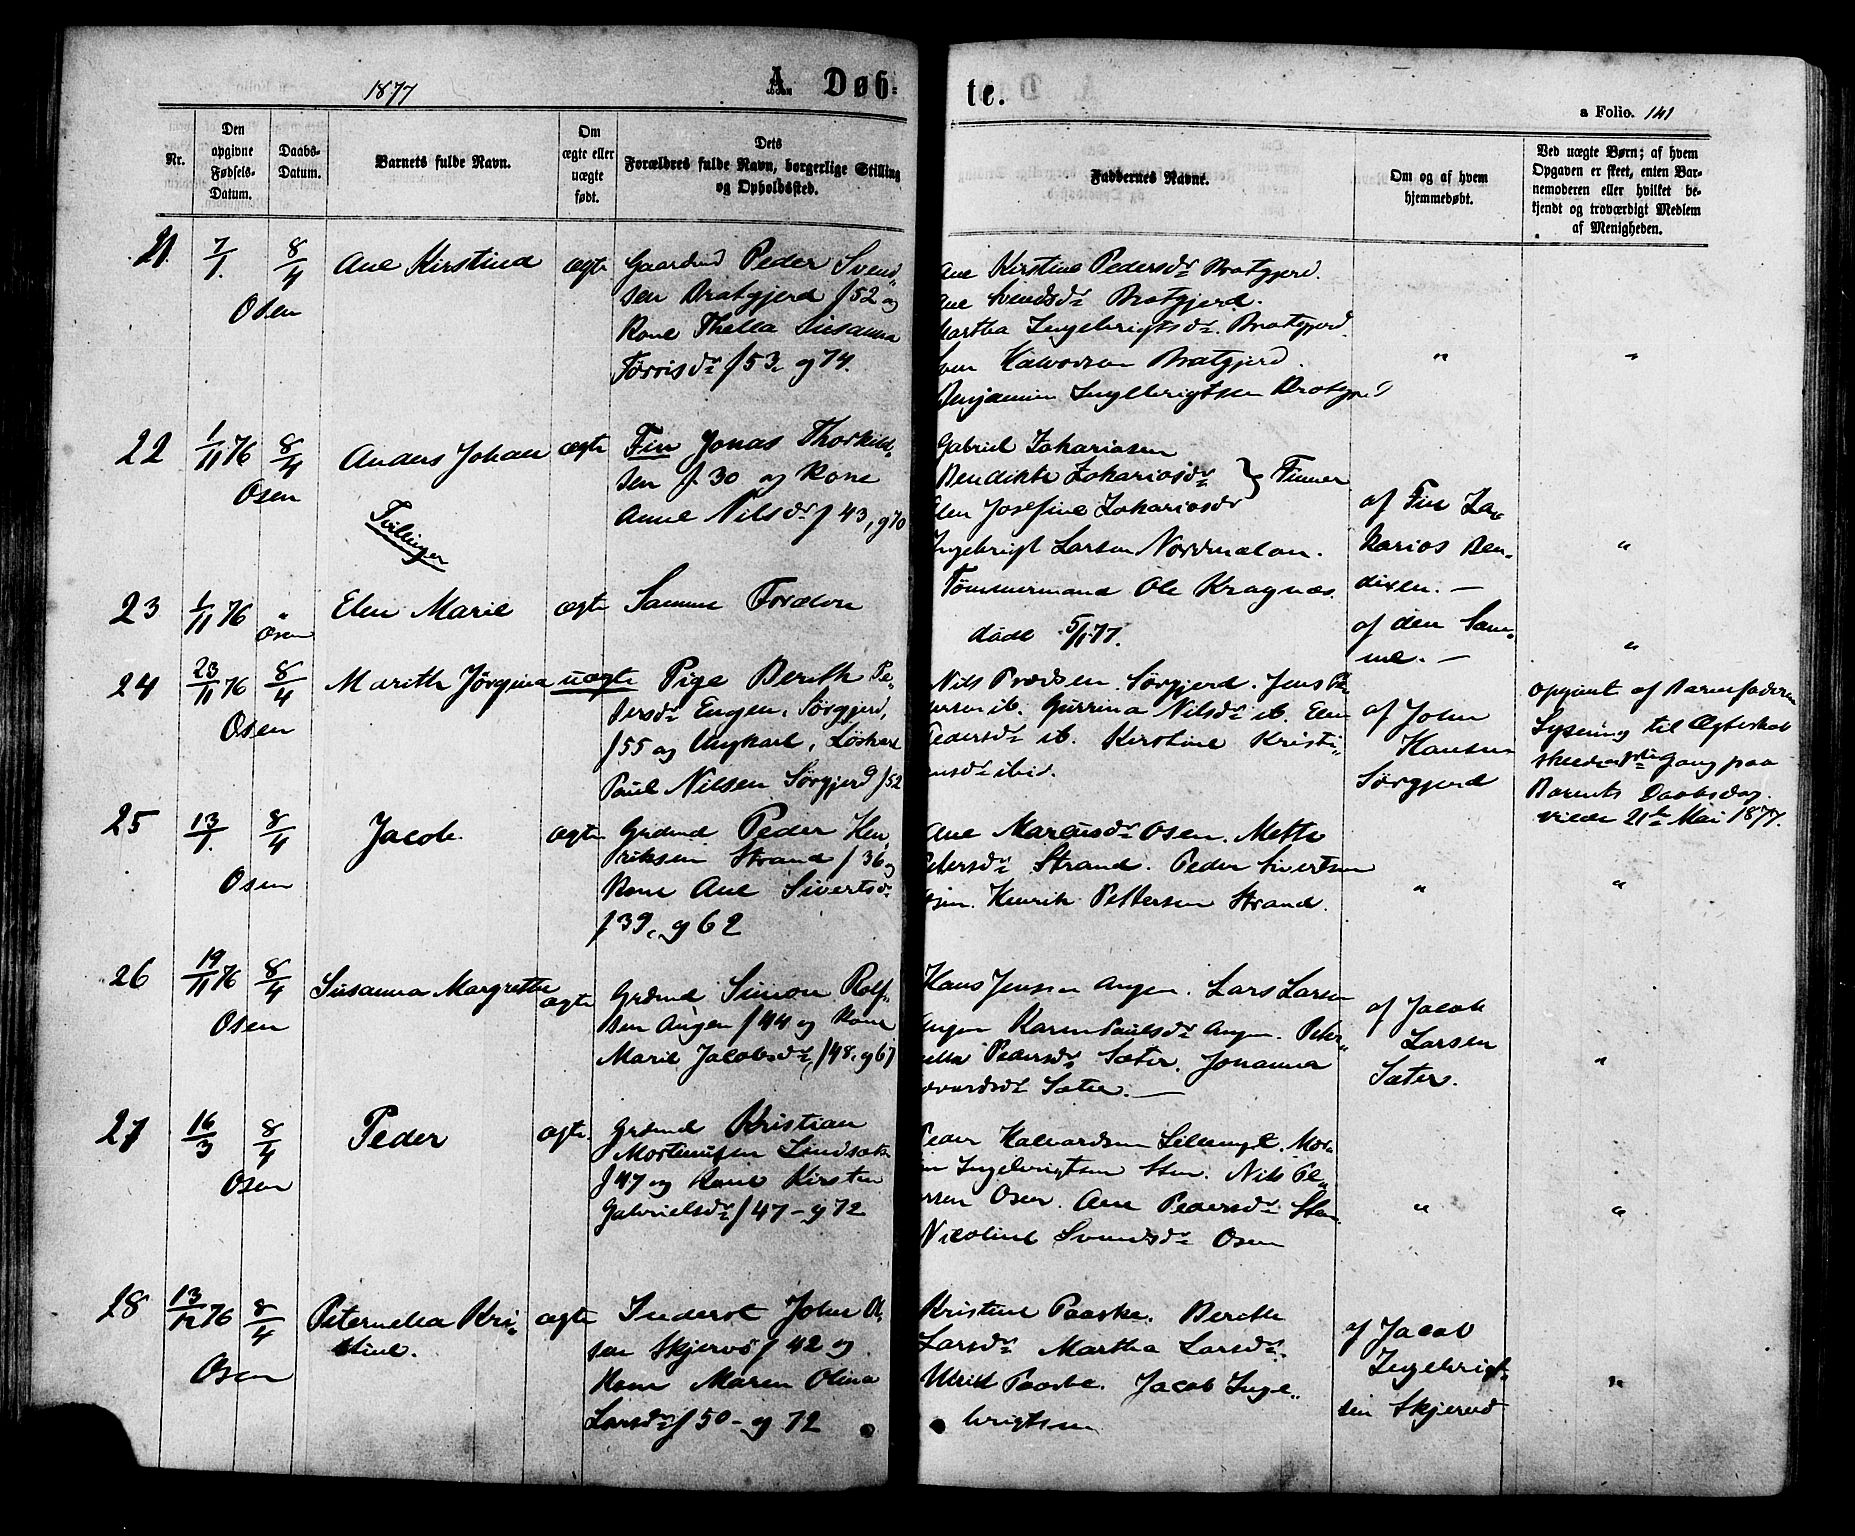 1877
A. Døb-
te.
a Folio. 141
Nr.
Den opgivne Fødsels-Datum.
Daabs-Datum.
Barnets fulde Navn.
Om ægte eller uægte født.
Dets
Forældres fulde Navn, borgerlige Stilling
og Opholdssted.
Faddernes Navne.
Om og af hvem
hjemmedøbt.
Ved uægte Børn; af hvem
Opgaven er skeet, enten Bar-
nemoderen eller hvilket be-
kjendt og troværdigt Medlem
af Menigheden.
21. 7/1. 8/4 Osen
Ane Kirstine
ægte
Gaardmd Peder Svend-
sen Bratgjerd f 52 og
Kone Thella Susanna
Torrisdr f 53, g 74.
Ane Kirstine Pedersdr Bratgjerd.
Ane Svendsdr Bratgjerd.
Martha Ingebrigtsdr. Bratgjerd.
Halvorsen Bratgjerd.
Benjamin Ingebrigtsen Bratgjerd
" "
22 1/11 76 8/4 Osen
Anders Johan
Tvillinger
ægte
Fin Jonas Thorkild-
sen f. 30 og Kone
Anne Nilsdr f 43, g 70
Gabriel Zakariasen
Bendikte Zakariasdr } Finner
Elen Josefine Zakariasdr
Ingebrigt Larsen Nordmelan.
Tømmermand Ole Kragnæs.
af Fin Za-
karias Ben-
dixen. —
"
23 1/11 76 " Osen
Elen Marie
ægte
Samme Forældre
døde 5/1 77.
af den Sam-
me. —
"
24 23/11 76 8/4 Osen
Marith Jørgina
uægte
Pige Berith Pe-
dersdr Engen, Sørgjerd,
f 55 og Ungkarl, Løskarl
Paul Nilsen Sørgjerd f 52
Nils Sørgjerd. Jens Pe-
dersen ib. Gurrina Nilsdr ib. Elen
Pedersdr ib. Kirstine Kristi-
ansdr ibid.
af John
Hansen
Sørgjerd
opgivet af Barnefaderen
Lysning til Ægteskab
Gang paa
Barnets Daabsdag.
viede 21de Mai 1877.
25 13/1. 8/4 Osen
Jacob
ægte
Grdmd Peder Hen-
riksen Strand f 36 og
Kone Ane Sivertsdr
f 39, g 62
Ane Marcusdr Osen. Mette
Petersdr Strand. Peder Sivertsen
Osen. Henrik Pettersen Strand.
" "
26 19/11 76 8/4 Osen
Susanna Margrethe
ægte
Grdmd Simon Rolf-
sen Angen f 44 og Kone
Marie Jacobsdr, f 48, g 67
Hans Jensen Angen. Lars Larsen
Angen Karen Paulsdr Angen. Peter-
nella Pedersdr Sæter. Johanna
Sæter. —
af Jacob
Larsen
Sæter.
"
27 16/3 8/4 Osen
Peder
ægte.
Grdmd Kristian
Mortensen Lindsæt
f 47 og Kone Kirsten
Gabrielsdr f 47 – g 72
Peder Halvardsen Lillengt. Mor-
ten Ingebrigtsen Sten. Nils Pe-
dersen Osen. Ane Pedersdr Sten
Nicoline Svendsdr Osen
" "
28 13/12 76 8/4 Osen
Peternella Kri-
stine.
ægte
Inderst John Ol-
sen Skjervø f 42 og
Kone Maren Olina
Larsdr f 50 – og 72
Kristine Paaske. Berethe
Larsdr Martha Larsdr.
Ulrik Paaske. Jacob Inge-
brigtsen
af Jacob
Ingebrigt-
sen Skjervø
"